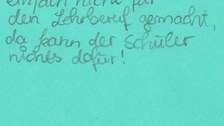 einfach nicht für
den Lehrberuf gemacht,
da kann der Schüler
nichts dafür!